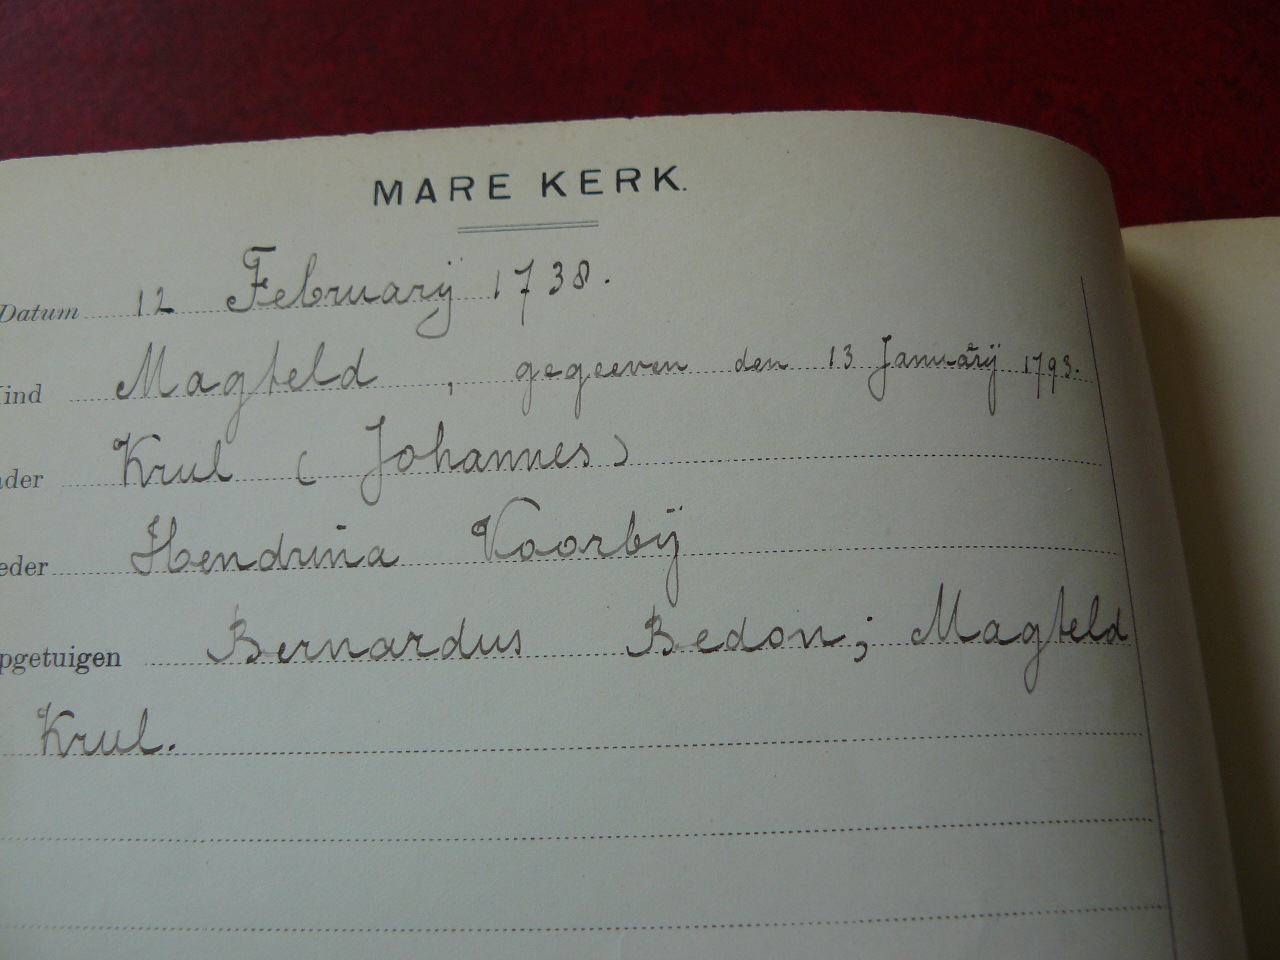 MARE KERK.
Datum 12 Februarij 1738.
ind Magteld, gegeeven den 13 Januarij 1793.
der Krul (Johannes)
eder Hendrina Voorbij
pgetuigen Bernardus Bedon; Magteld
Krul.